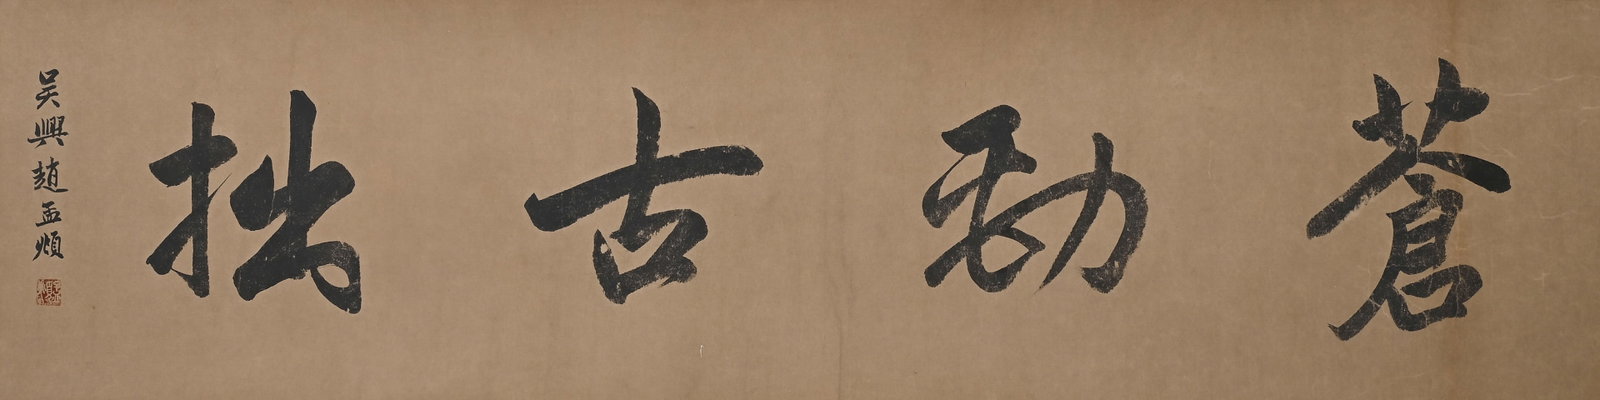 蒼勁古拙
吳興趙孟頫